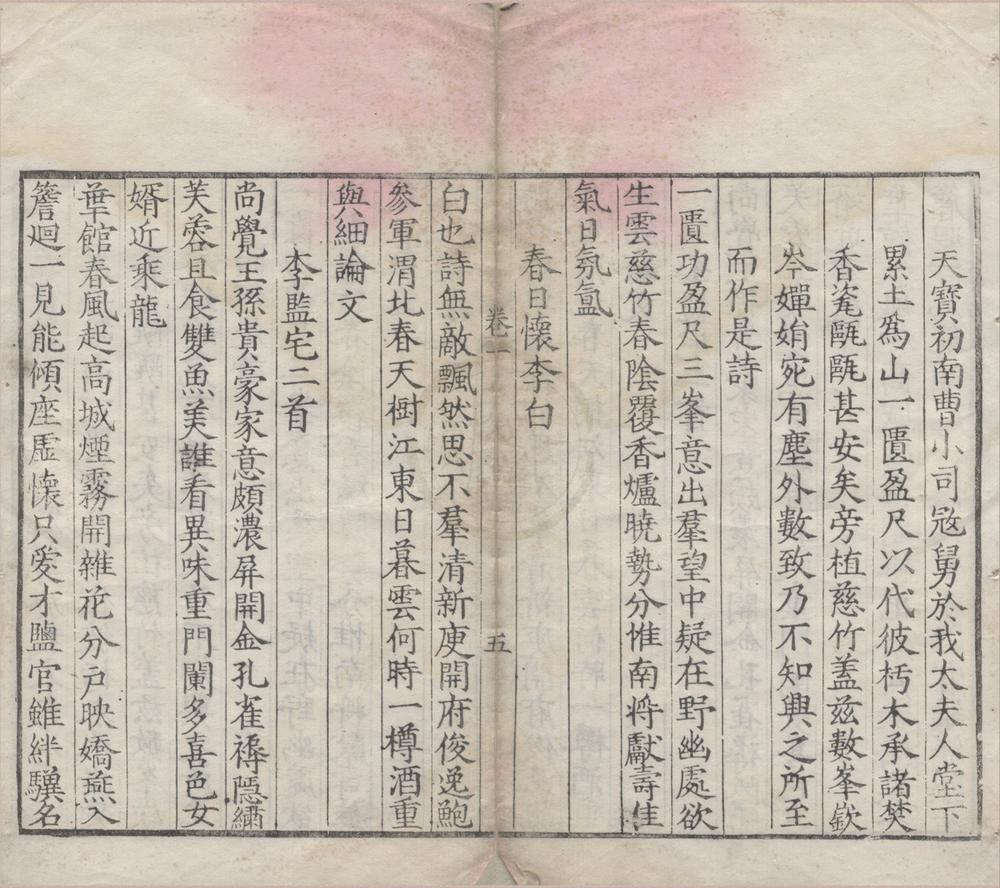 天寶初南曹小司冦舅於我太夫人堂下
累土爲山一匱盈尺以代彼朽木承諸焚
香瓷甌甌甚安矣旁植慈竹蓋茲數峯嶔
岑嬋娟宛有塵外數致乃不知興之所至
而作是詩
一匱功盈尺三峯意出羣望中疑在野幽處欲
生雲慈竹春陰覆香爐曉勢分惟南将獻壽佳
氣日氛氲
春日懷李白
卷一
五
白也詩無敵飄然思不羣清新庾開府俊逸鮑
參軍渭北春天樹江東日暮雲何時一樽酒重
與細論文
李監宅二首
尚覺王孫貴豪家意頗濃屏開金孔雀褥隱繡
芙蓉且食雙魚美誰看異味重門闌多喜色女
婿近乘龍
華館春風起高城煙霧開雜花分戸映嬌燕入
簷迴一見能傾座虚懷只愛才鹽官雖絆驥名